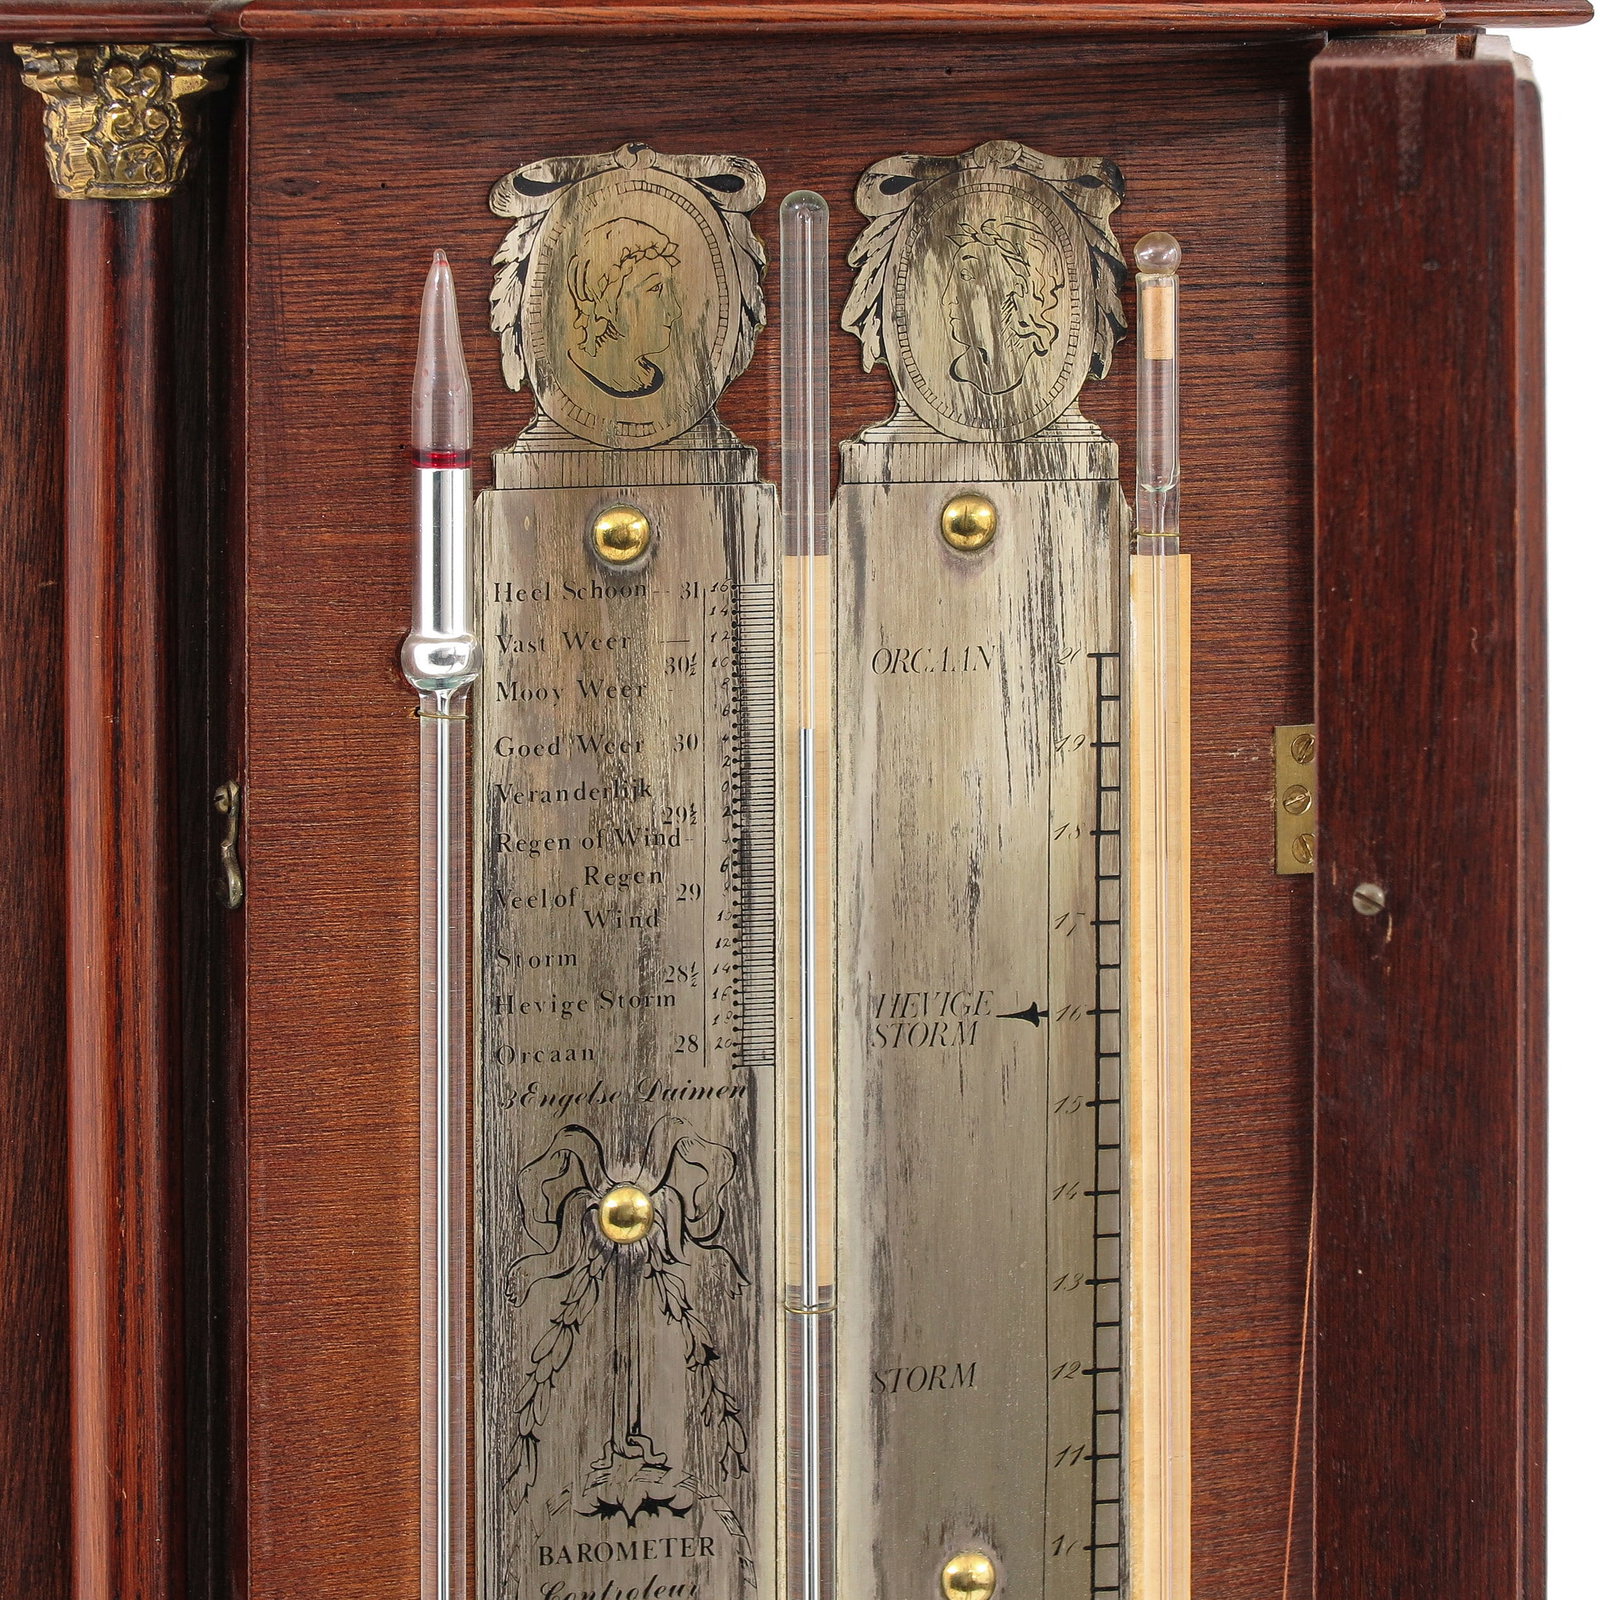 Heel Schoon -- 31 16
14
Vast Weer — 12
30½ 10
Mooy Weer - 8
6
Goed Weer 30 4
2
Veranderlijk 0
29½ 2
Regen of Wind- 4
6
Regen
Veel of - 29 8
Wind 10
12
Storm
28½ 14
Hevige Storm 16
18
Orcaan 28 20
3 Engelse Duimen
BAROMETER
Controleur
ORCAAN 20
19
18
17
HEVIGE 16
STORM
15
14
13
STORM 12
11
10